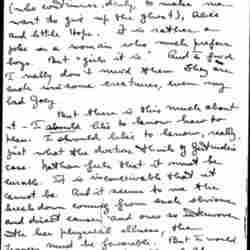 (who continues, dearly, to make me
want to give up the ghost), Alice
and little Hope. It is rather a
joke on a woman who much prefers
boys. But "girls it is. And
I really don't mind them They are
such winsome creatures, even my
bad Joey
But there is this much about
it - I should like to know how to
plan. I should like to know, really
just what the doctors think of Gertrude's
case. Nathan feels that it must be
curable. It is inconceivable that it
cannot be. And it seems to me the
break down coming from such obvious
and direct causes, and once so
the her physical illness, then
must be favorable. But I would